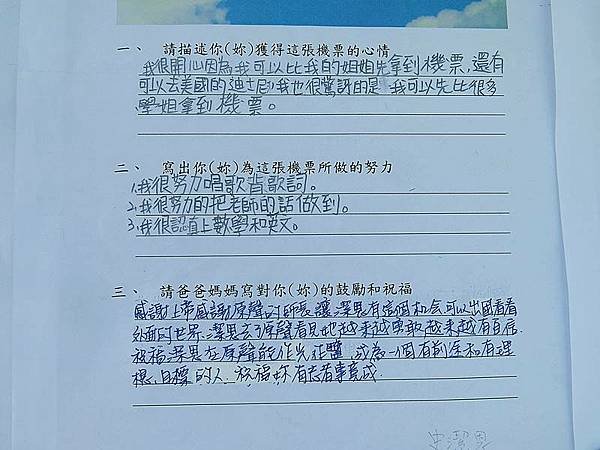 一、 請描述你(妳)獲得這張機票的心情
我很開心因為我可以比我的姐姐先拿到機票，還有
可以去美國的迪士尼，我也很驚訝的是 我可以先比很多
學姐拿到機票。
二、 寫出你(妳)為這張機票所做的努力
1.我很努力唱歌背歌詞。
2.我很努力的把老師的話做到。
3.我很認真上數學和英文。
三、 請爸爸媽媽寫對你(妳)的鼓勵和祝福
感謝上帝感謝原聲的師長讓潔恩有這個机会可以出國看看
外面的世界。潔恩去了原聲看見她越來越勇敢越來越有自信.
祝福潔恩在原聲能作光作鹽，成為一個有前途和有理
想,目標的人.祝福妳有志者事竟成.
史潔恩